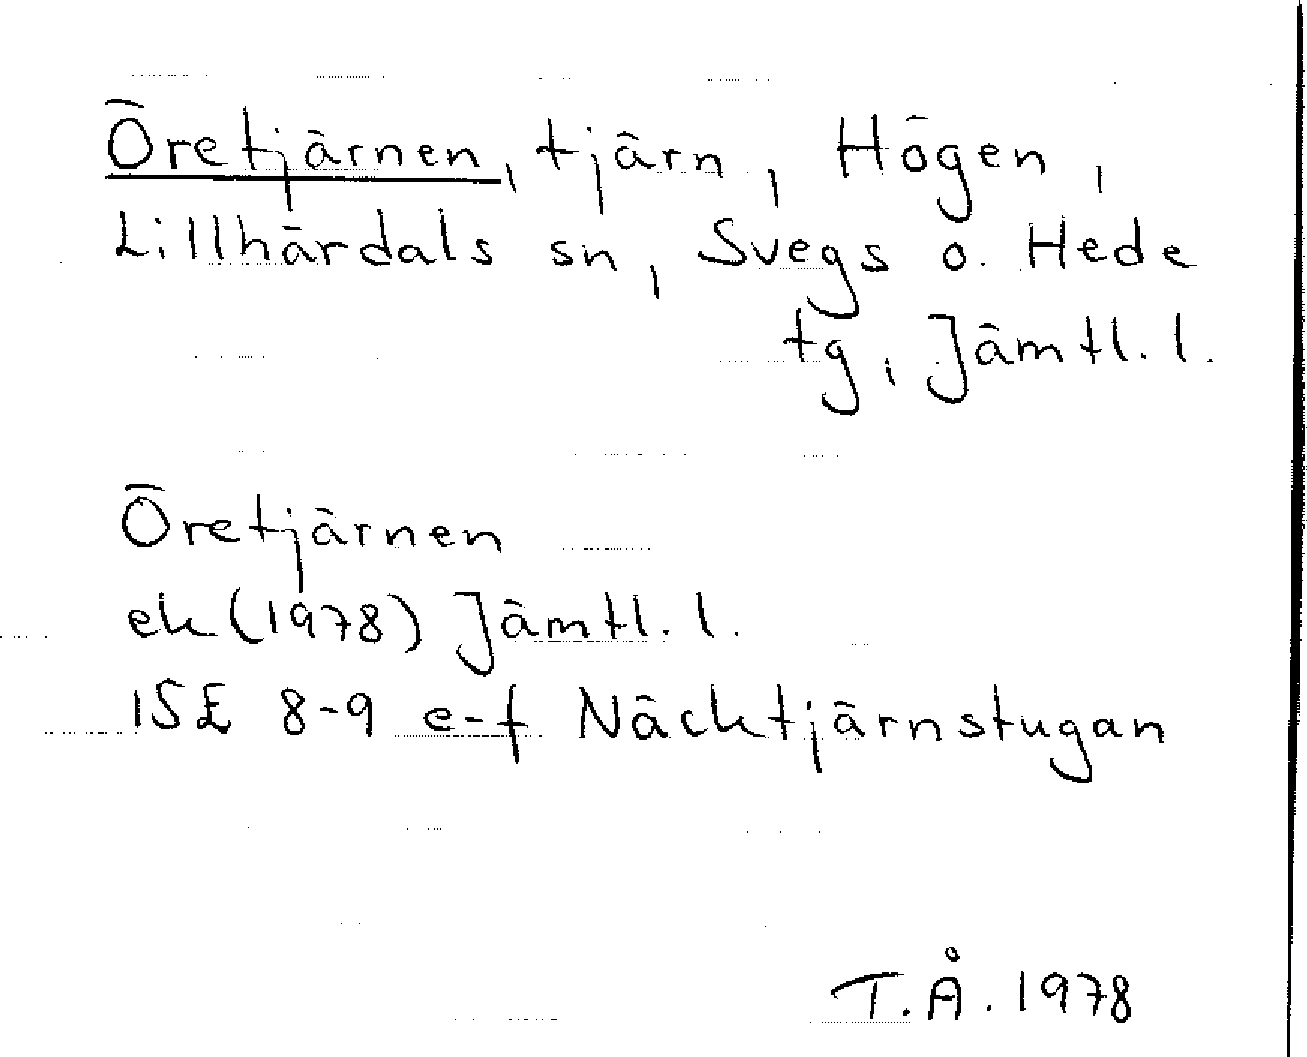 Öretjärnen, tjärn, Högen,
Lillhärdals sn, Svegs o. Hede
tg, Jämtl. l.
Öretjärnen
ek (1978) Jämtl. l.
15E 8-9 e-f Näcktjärnstugan
T.Å. 1978